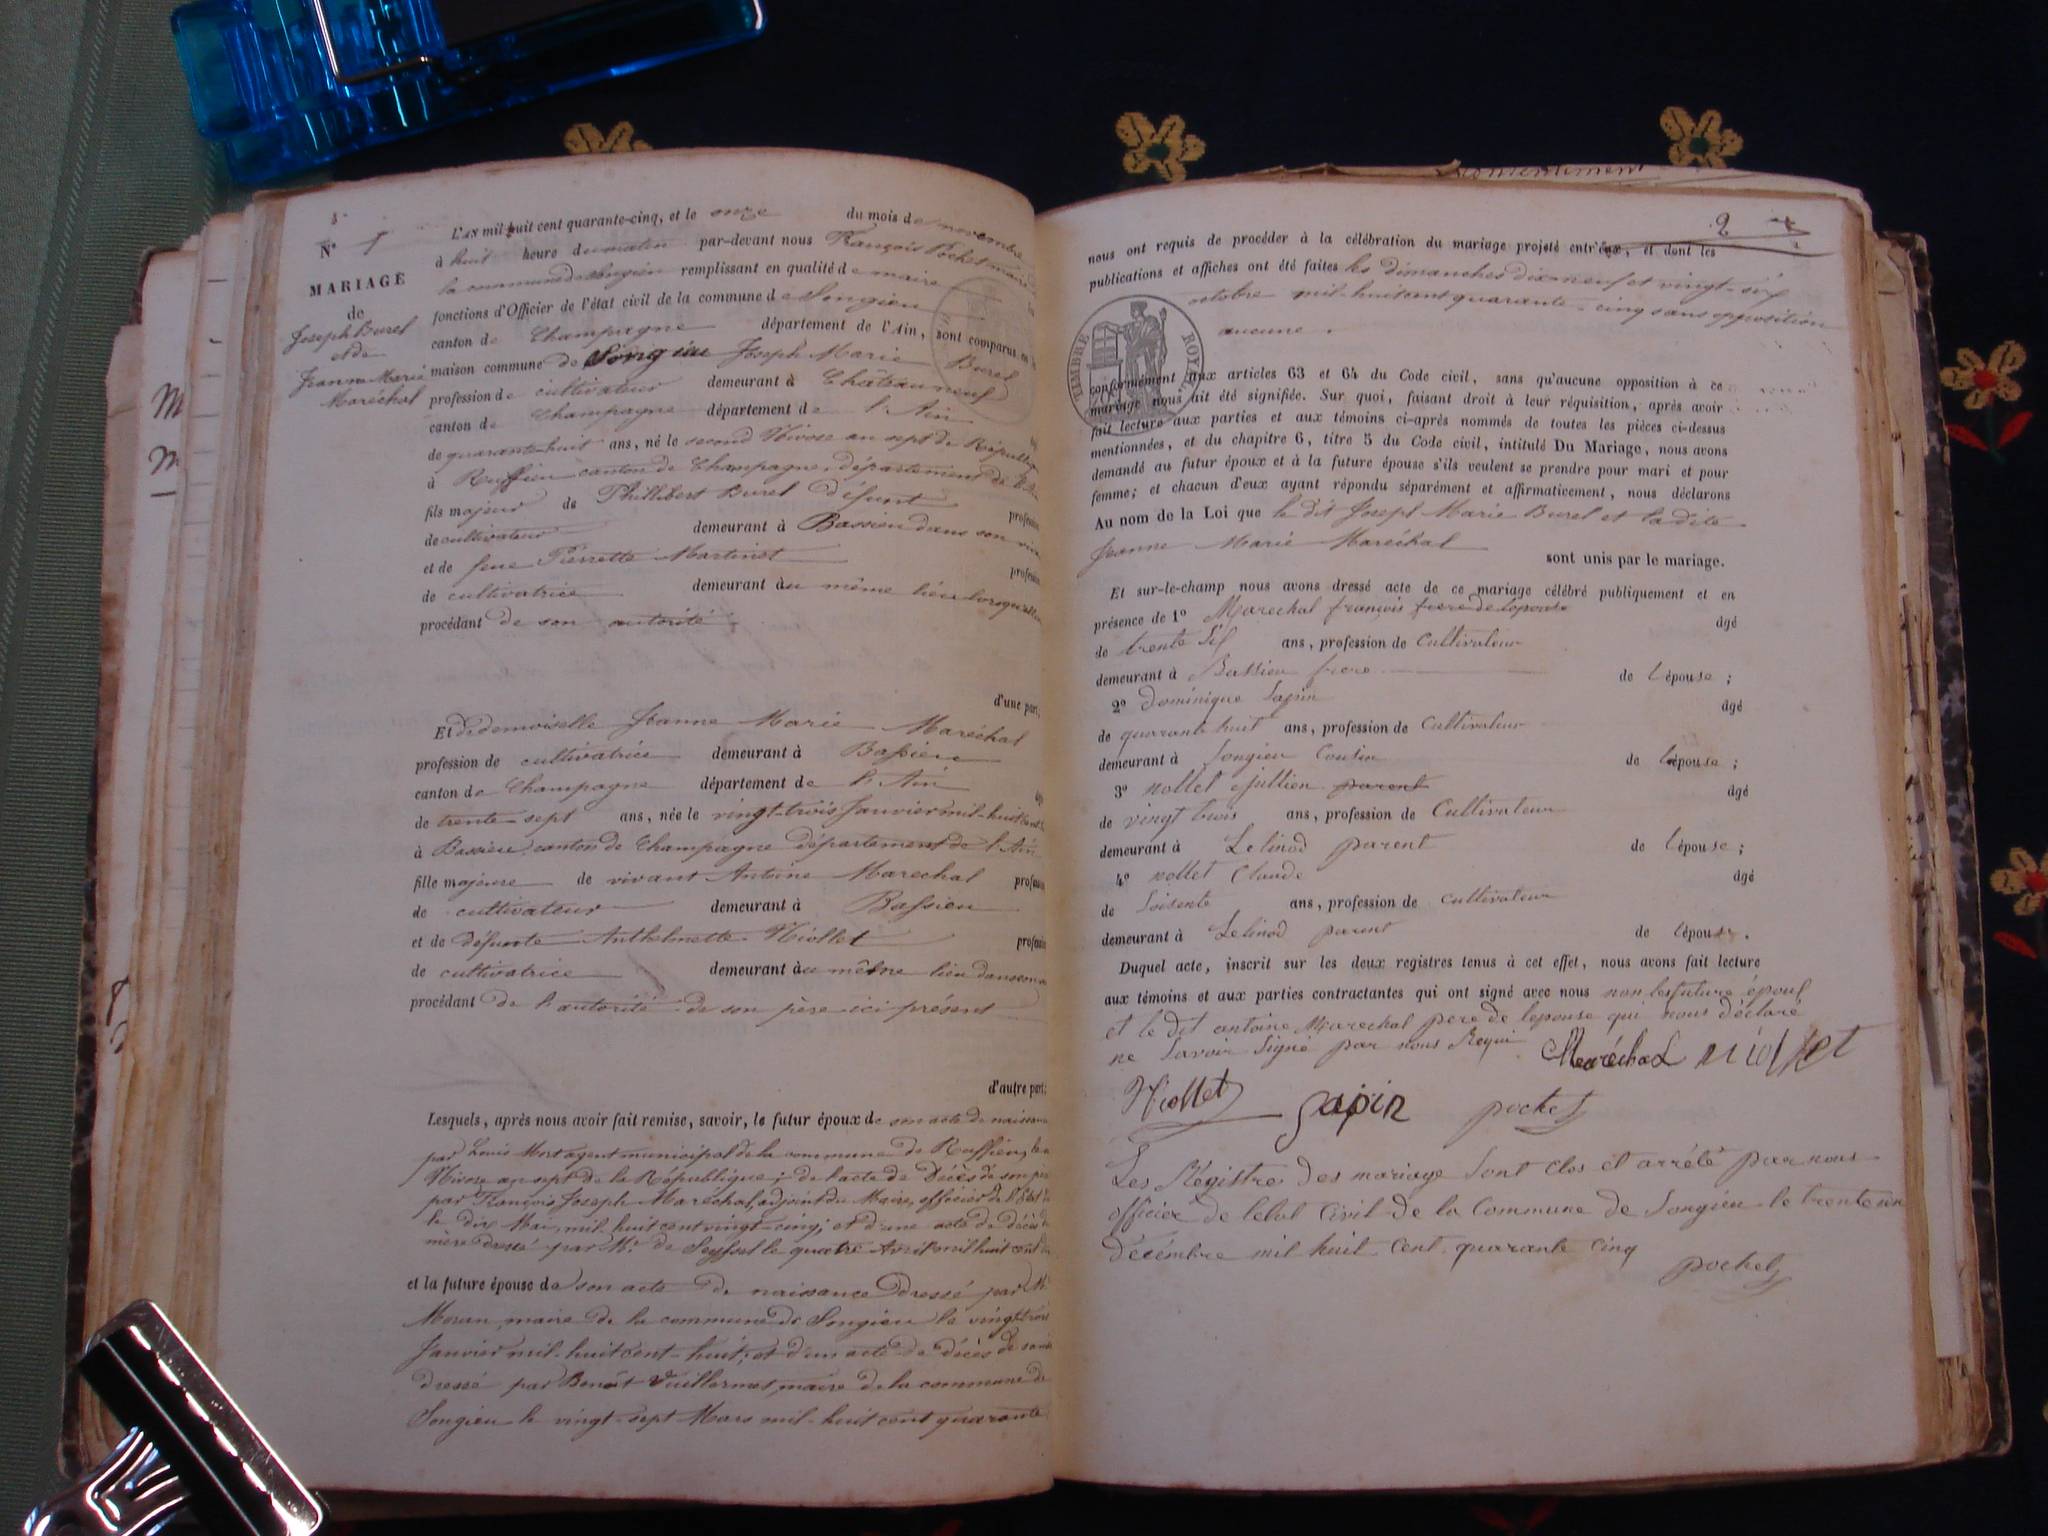 5
N° 1
MARIAGE
de
Joseph Burel
et de
Jeanne Marie
Maréchal
L'AN mil huit cent quarante-cinq, et le onze du mois de novembre
à huit heure du matin par-devant nous François Pochet maire de
la commune de Songieu remplissant en qualité de maire
fonctions d'Officier de l'état civil de la commune de Songieu
canton de Champagne département de l'Ain, sont comparus en
maison commune de Songieu Joseph Marie Burel
profession de cultivateur demeurant à Châteauneuf
canton de Champagne département de l'Ain
de quarante-huit ans, né le second Nivose an sept de République
à Ruffieu canton de Champagne, département de l'Ain
fils majeur de Philibert Burel défunt profession
de cultivateur demeurant à Bassieu dans son vivant
et de feue Pierrette Martinet profession
de cultivatrice demeurant au même lieu lorsqu'elle
procédant de son autorité
d'une part,
Et de demoiselle Jeanne Marie Maréchal
profession de cultivatrice demeurant à Bassieu
canton de Champagne département de l'Ain
de trente-sept ans, née le vingt-trois Janvier mil-huit cent
à Bassieu canton de Champagne département de l'Ain
fille majeure de vivant Antoine Marechal profession
de cultivateur demeurant à Bassieu
et de défunte Anthelmette Niollet profession
de cultivatrice demeurant au même lieu dans son
procédant de l'autorité de son père ici présent
d'autre part;
Lesquels, après nous avoir fait remise, savoir, le futur époux de son acte de naissance
par Louis Mort agent municipal de la commune de Ruffieu, le
Nivose an sept de la République; de l'acte de Décès de son père
par François Joseph Maréchal, adjoint du Maire, officier de l'Etat
le dix Mai, mil huit cent vingt-cinq; et d'une acte de décès de
mère dressé par Mr. de Seyssel le quatre Avril mil huit cent
et la future épouse de son acte de naissance dressé par Mr
Moran, maire de la commune de Songieu le vingt trois
Janvier mil-huit cent-huit; et d'un acte de décès de sa mère
dressé par Benoit Vuillermet, maire de la commune de
Songieu le vingt-sept Mars mil-huit cent quarante
2
nous ont requis de procéder à la célébration du mariage projeté entr'eux, et dont les
publications et affiches ont été faites les dimanches dix-neuf et vingt-six
octobre mil-huit cent quarante-cinq sans opposition
aucune.
TIMBRE ROYAL
conformément aux articles 63 et 64 du Code civil, sans qu'aucune opposition à ce
mariage nous ait été signifiée. Sur quoi, faisant droit à leur réquisition, après avoir
fait lecture aux parties et aux témoins ci-après nommés de toutes les pièces ci-dessus
mentionnées, et du chapitre 6, titre 5 du Code civil, intitulé Du Mariage, nous avons
demandé au futur époux et à la future épouse s'ils veulent se prendre pour mari et pour
femme; et chacun d'eux ayant répondu séparément et affirmativement, nous déclarons
Au nom de la Loi que le dit Joseph Marie Burel et la dite
Jeanne Marie Maréchal sont unis par le mariage.
Et sur-le-champ nous avons dressé acte de ce mariage célébré publiquement et en
présence de 1° Marechal françois frere de lepouse âgé
de trente six ans, profession de Cultivateur
demeurant à Bassieu frere de l'épouse;
2° dominique Sapin âgé
de quarante huit ans, profession de Cultivateur
demeurant à Songieu Cousin de l'épouse;
3° niollet jullien parent âgé
de vingt trois ans, profession de Cultivateur
demeurant à Lelinod parent de l'épouse;
4° niollet Claude âgé
de Soisente ans, profession de Cultivateur
demeurant à Lelinod parent de l'épouse.
Duquel acte, inscrit sur les deux registres tenus à cet effet, nous avons fait lecture
aux témoins et aux parties contractantes qui ont signé avec nous non les future époux
et le dit antoine Marechal pere de lepouse qui nous déclaré
ne Savoir Signé par nous Requi Maréchal niollet
Niollet Sapin pochet
Les Régistre des mariage Sont clos et arrété par nous
officier de letat Civil de la Commune de Songieu le trente un
décémbre mil huit cent quarante cinq
pochet